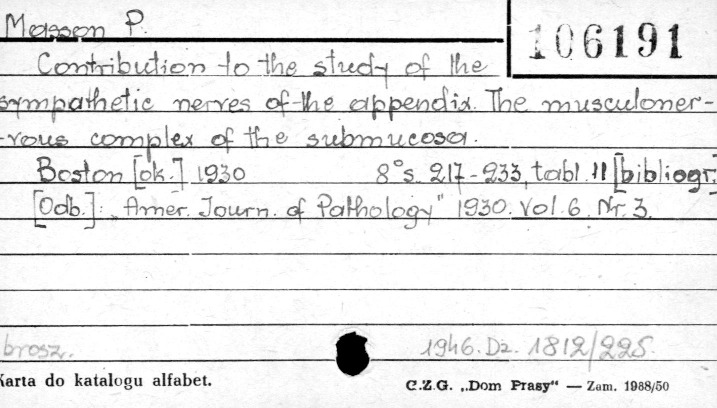 Masson P.
106191
Contribution to the study of the
sympathetic nerves of the appendix. The musculoner-
-vous complex of the submucosa.
Boston [ok.] 1930 8° s. 217-233, tabl. 11 [bibliogr.]
[Odb.]: "Amer. Journ. of Pathology" 1930. Vol. 6. Nr. 3.
brosz.
1946. Dz. 1812/225.
Karta do katalogu alfabet.
C.Z.G. „Dom Prasy" — Zam. 1988/50